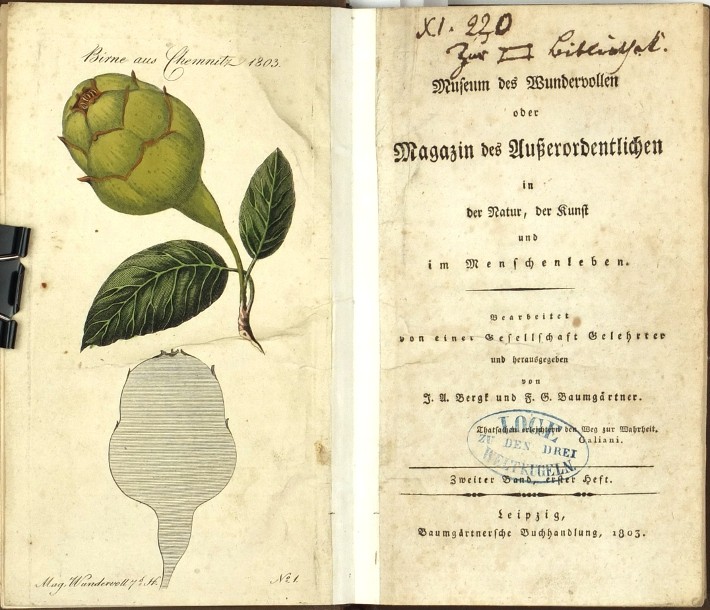 Birne aus Chemnitz 1803.
Mag. Wundervoll 7ᵗ. St.
Nº 1.
XI. 220
Zur ▭ Bibliothek.
Museum des Wundervollen
oder
Magazin des Außerordentlichen
in
der Natur, der Kunst
und
im Menschenleben.
Bearbeitet
von einer Gesellschaft Gelehrter
und herausgegeben
von
J. A. Bergk und F. G. Baumgärtner.
Thatsachen erleichtern den Weg zur Wahrheit.
Galiani.
LOGE
ZU DEN DREI
WELTKUGELN.
Zweiter Band, erster Heft.
Leipzig,
Baumgärtnersche Buchhandlung, 1803.